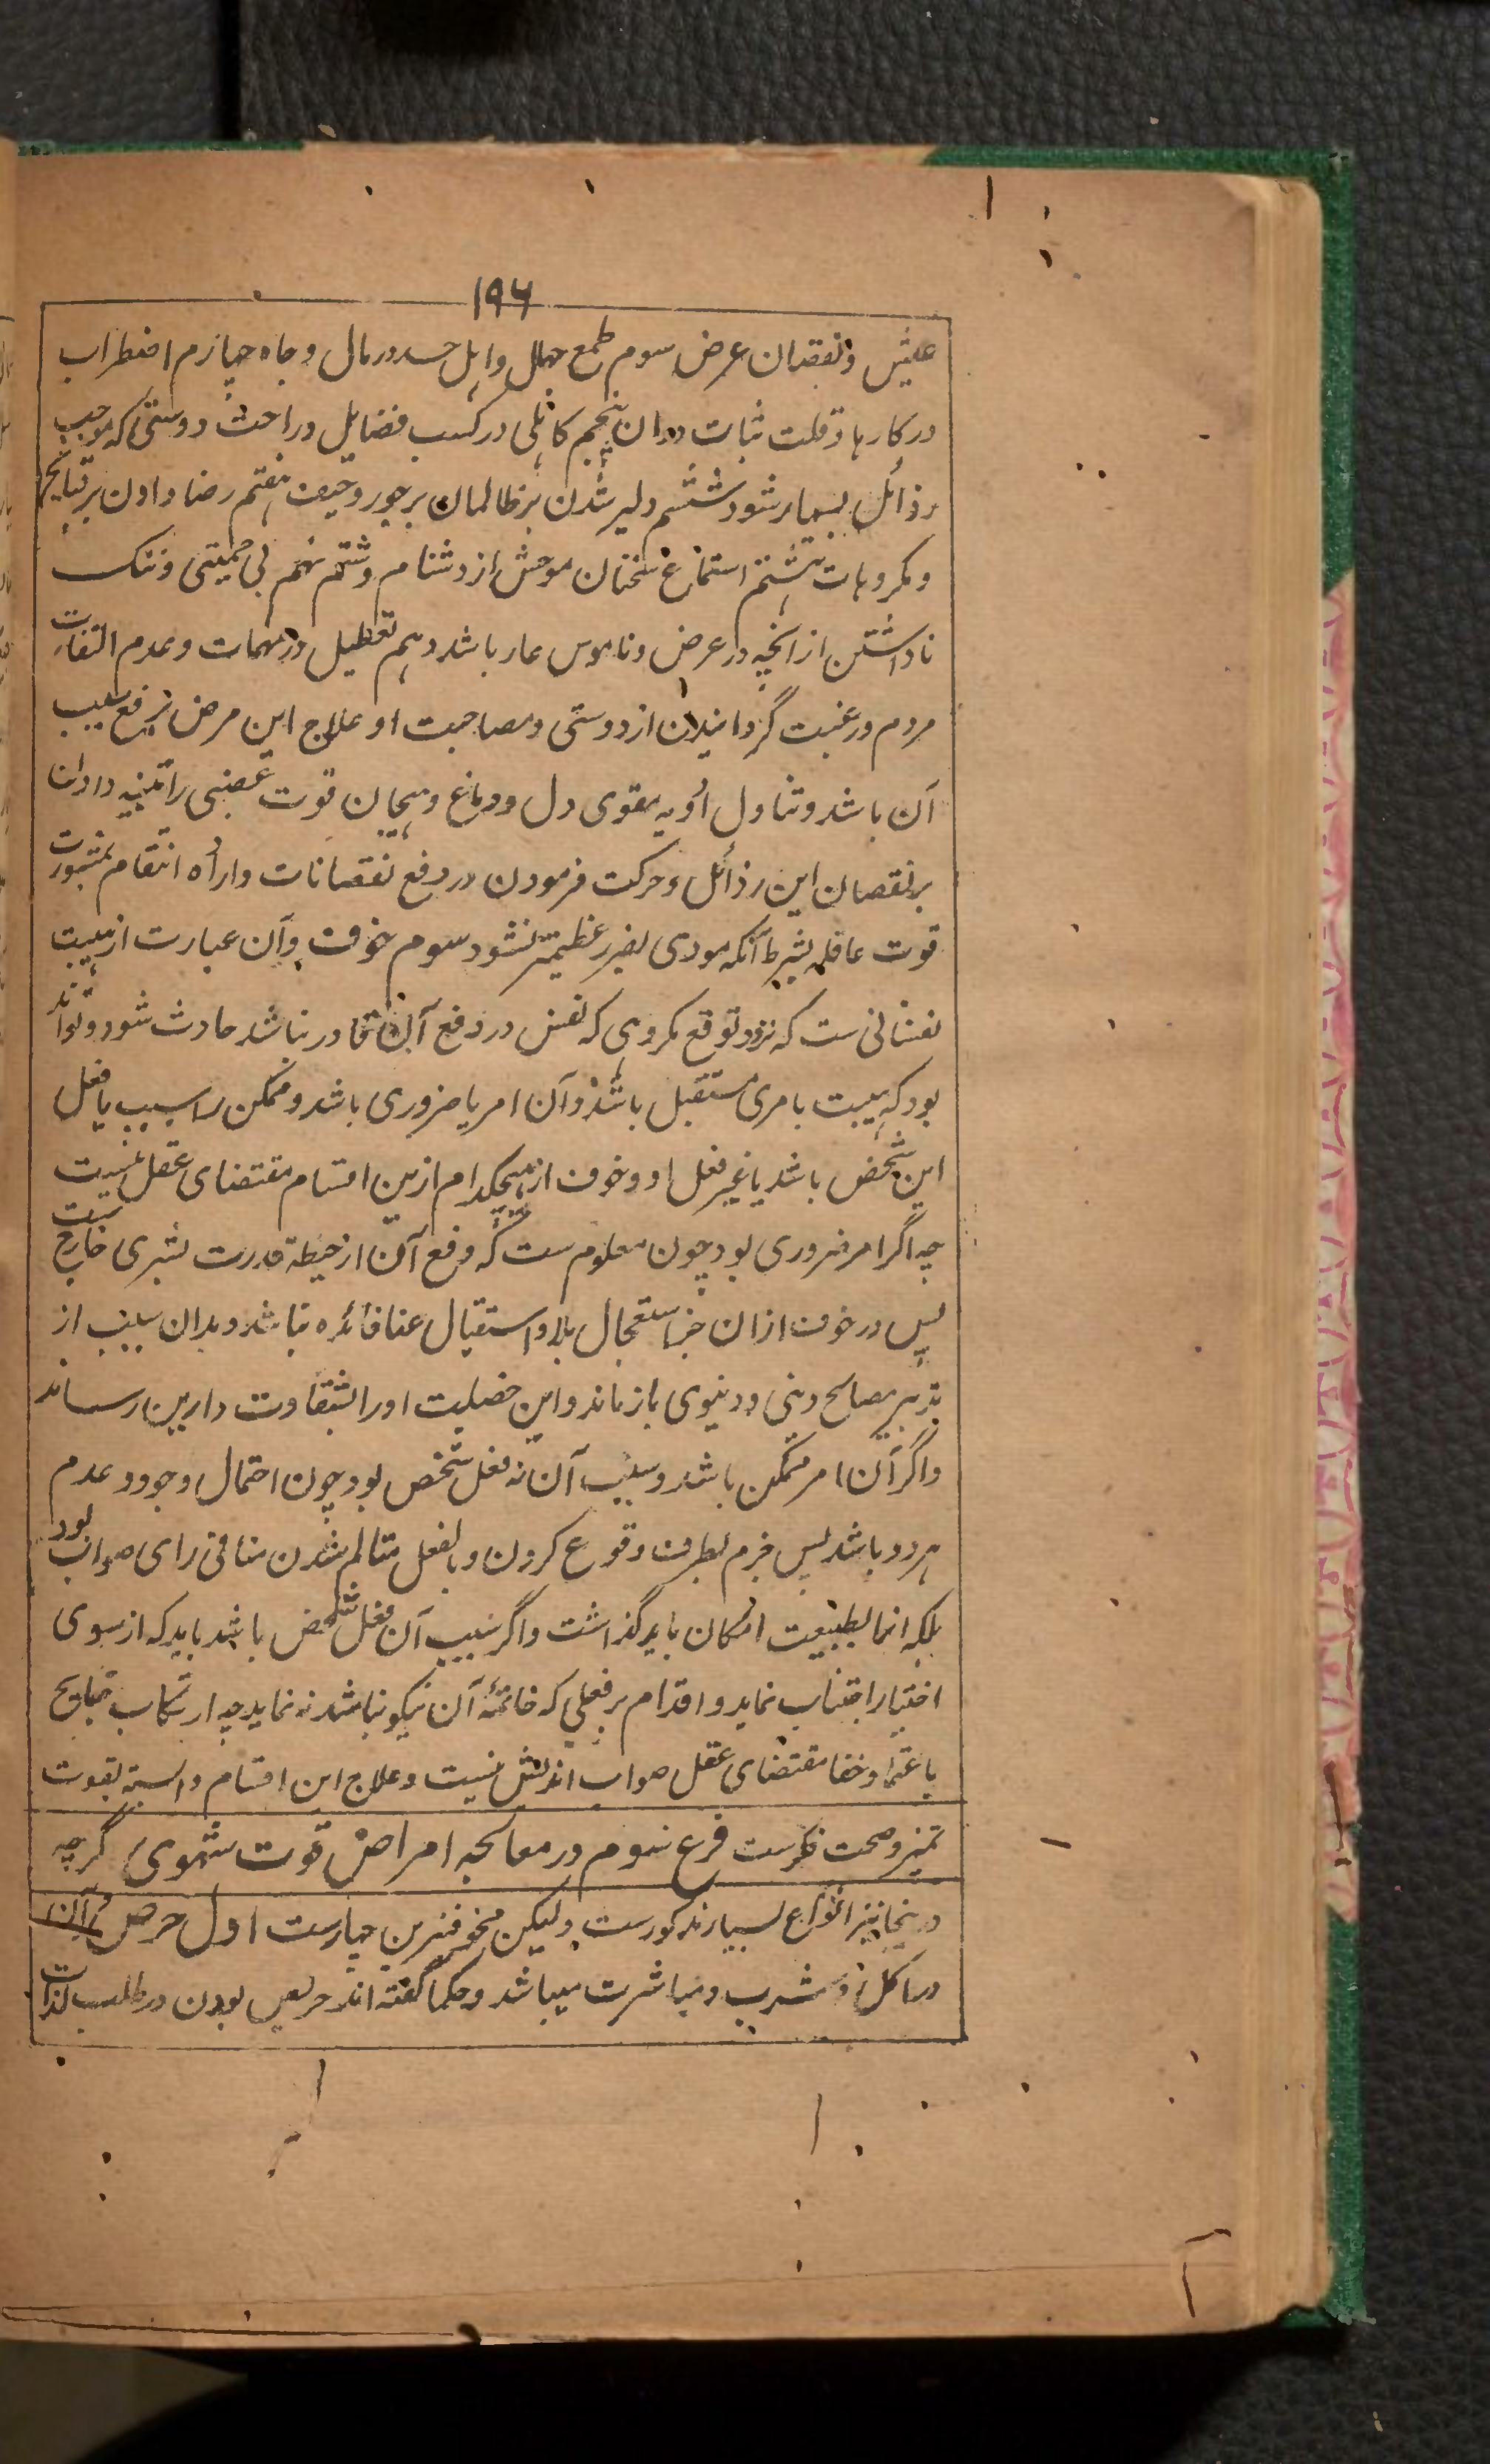 ۱۹۶
عیش و نقصان عرض سوم طمع جهال و اهل حسد در مال و جاه چهارم اضطراب
در کارها و قلت ثبات در ان پنجم کاهلی در کسب فضایل و راحت دوستی که موجب
رذائل بسیار شود ششم دلیر شدن بر ظالمان بر جور و حیف هفتم رضا دادن بر قبایح
و مکروهات هشتم استماع سخنان موحش از دشنام و شتم نهم بی حمیتی و ننک
ناداشتن از انچه در عرض و ناموس عار باشد دهم تعطیل در مهمات و عدم التفات
مردم و رغبت گردانیدن از دوستی و مصاحبت او علاج این مرض برفع سبب
آن باشد و تناول ادویه مقوی دل و دماغ و هیجان قوت غضبی را تنبیه دادن
بر نقصان این رذائل و حرکت فرمودن در دفع نقصانات و اراده انتقام بمشورت
قوت عاقله بشرط آنکه مودی بضرر عظیمتر نشود سوم خوف و آن عبارت از هیبت
نفسانی ست که نزد توقع مکروهی که نفس در دفع آن قادر نباشد حادث شود و تواند
بود که هیبت بامری مستقبل باشد و آن امر یا ضروری باشد و ممکن را سبب یا فعل
این شخص باشد یا غیر فعل او و خوف از هیچکدام ازین اقسام مقتضای عقل نیست
چه اگر امر ضروری بود چون معلوم ست که دفع آن از حیطهٔ قدرت بشری خارج ست
پس در خوف ازان جز استعجال بلا و استقبال عنا فائده نباشد و بدان سبب از
تدبیر مصالح دینی و دنیوی باز ماند و این خصلت اورا بشقاوت دارین رساند
و اگر آن امر ممکن باشد و سبب آن نه فعل شخص بود چون احتمال وجود و عدم
هر دو باشد پس جزم بطرف وقوع کردن و بالفعل متالم شدن منافی رای صواب بود
بلکه انما بطبیعت امکان باید گذاشت و اگر سبب آن فعل شخص باشد باید که از سوی
اختیار اجتناب نماید و اقدام بر فعلی که خاتمهٔ آن نیکو نباشد نه نماید چه ارتکاب قبایح
باعتماد خفا مقتضای عقل صواب اندیش نیست و علاج این اقسام وابسته بقوت
تمیز و صحت فکرست فرع سوم در معالجه امراض قوت شهوی گرچه
درینجا نیز انواع بسیار مذکورست ولیکن مخوفترین چهارست اول حرص و آن
در اکل و شرب و مباشرت میباشد و حکما گفته اند حریص بودن در طلب لذات